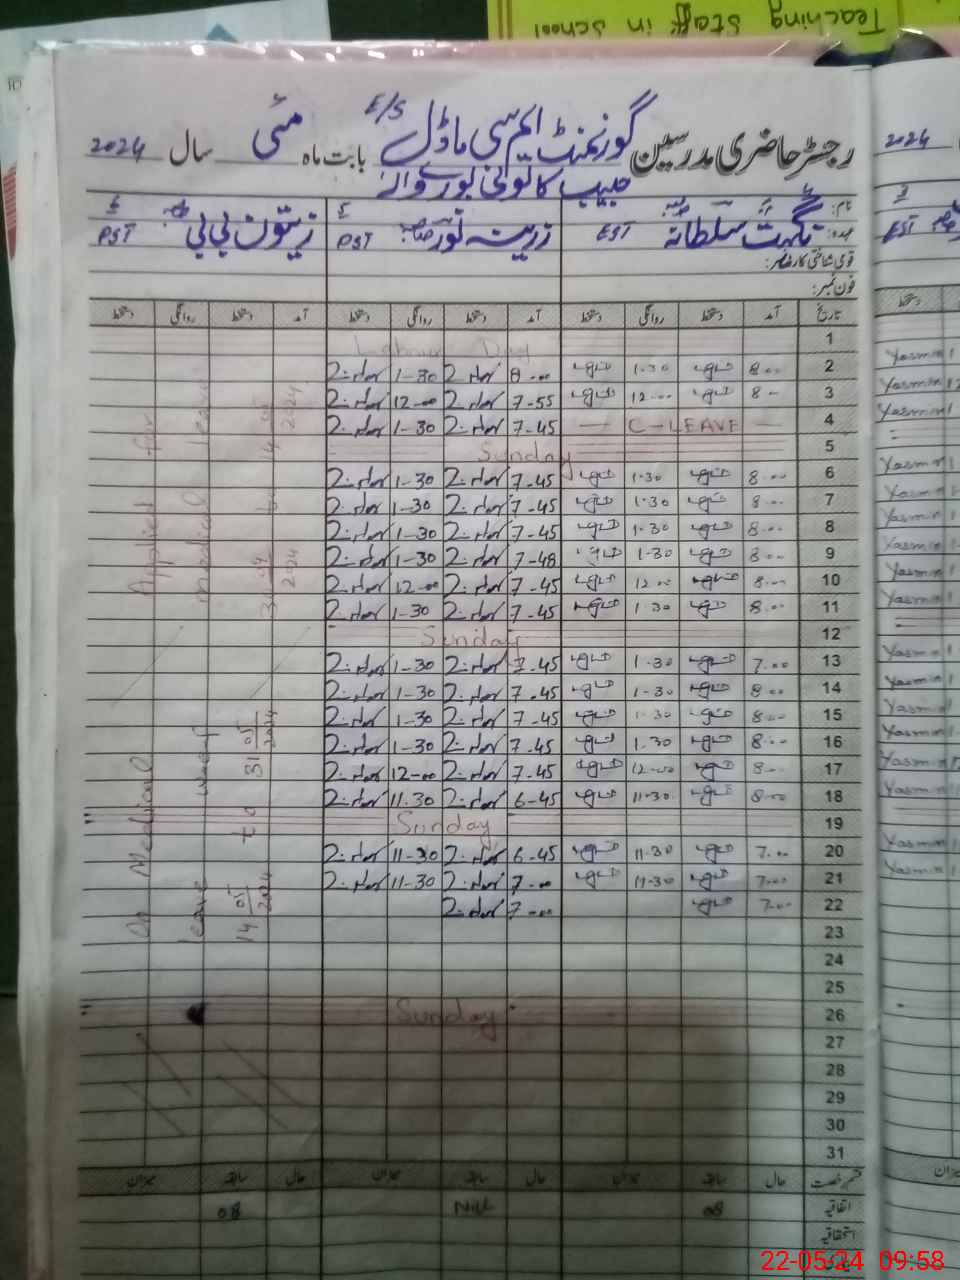 Teaching Staff in School
رجسٹر حاضری مدرسین گورنمنٹ ایم سی ماڈل E/S بابت ماہ مئی سال 2024
حبیب کالونی بورے والہ
2024
نام: نگہت سلطانہ زرینہ نور زیتون بی بی
عہدہ: EST PST PST
EST
قومی شناختی کارڈ نمبر:
فون نمبر:
تاریخ آمد دستخط روانگی دستخط آمد دستخط روانگی دستخط آمد دستخط روانگی دستخط
1 Labour Day
2 8-00 1-30 8-00 1-30
3 8-00 12-00 7-55 12-00
4 C-LEAVE 7-45 1-30
5 Sunday
6 8-00 1-30 7-45 1-30
7 8-00 1-30 7-45 1-30
8 8-00 1-30 7-45 1-30
9 8-00 1-30 7-48 1-30
10 8-00 12-00 7-45 12-00
11 8-00 1-30 7-45 1-30
12 Sunday
13 7-00 1-30 7-45 1-30
14 8-00 1-30 7-45 1-30
15 8-00 1-30 7-45 1-30
16 8-00 1-30 7-45 1-30
17 8-00 12-00 7-45 12-00
18 8-00 11-30 6-45 11-30
19 Sunday
20 7-00 11-30 6-45 11-30
21 7-00 11-30 7-00 11-30
22 7-00 7-00
23
24
25
26 Sunday
27
28
29
30
31
Applied for
medical leave
30 04 2024 to 14 05 2024
On Medical
leave w.e.f
14 05 2024 to 31 05 2024
Yasmin
Yasmin
Yasmin
Yasmin
Yasmin
Yasmin
Yasmin
Yasmin
Yasmin
Yasmin
Yasmin
Yasmin
Yasmin
Yasmin
Yasmin
Yasmin
قسم رخصت حال سابقہ میزان حال سابقہ میزان حال سابقہ میزان
اتفاقیہ 08 Nill 08
استحقاقیہ
22-05-24 09:58